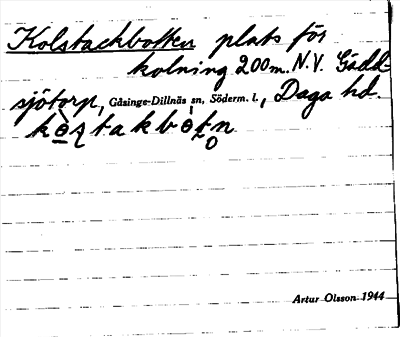 Kolstackbotten plats för
kolning 200m. N.V. Gädd-
sjötorp, Gåsinge-Dillnäs sn, Söderm. l., Daga hd.
Artur Olsson 1944